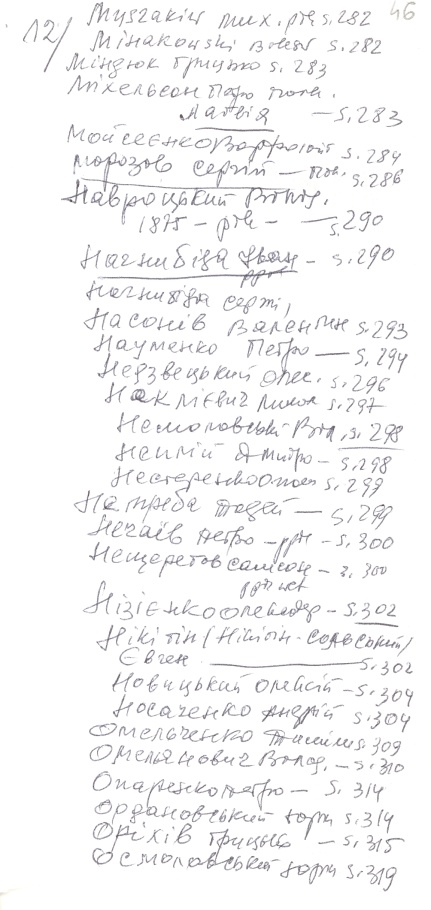 46
12/ Музгакін мих. рţ s.282
Мінаковski Волод s.282
Міндюк Грицько s. 283
Міхельсон Падо
Латвія — s.283
Мойсеєнко Варфолом s. 284
Морозов Сергій — пол. s.286
Навроцький Волод.
1875 – рţн – — s.290
Нагнибіда Іван – s.290
Нагнибіда Сергі,
Насонів Валентин s.293
Науменко Петро — s. 294
Недзвецький Олес. s.296
Неклієвич s.297
Немоловські Вол, s. 298
Неплій Дмитро – s.298
Нестеренко s. 299
Нетреба Тадей — s.299
Нечаїв Петро – ррн – s.300
Нещеретов Самсон – s. 300
Нізієнко Олександр – s.302
Нікітін (Нікітін-Сольський)
Євген —— s.302
Новицький Олексій – s.304
Носаченко Андрій s.304
Омельченко s 309
Омельянович Волод. – s.310
Опаренко Петро – s. 314
Ордановський Юрій s.314
Оріхів Грицько – s.315
Осмоловський Юрій s.319